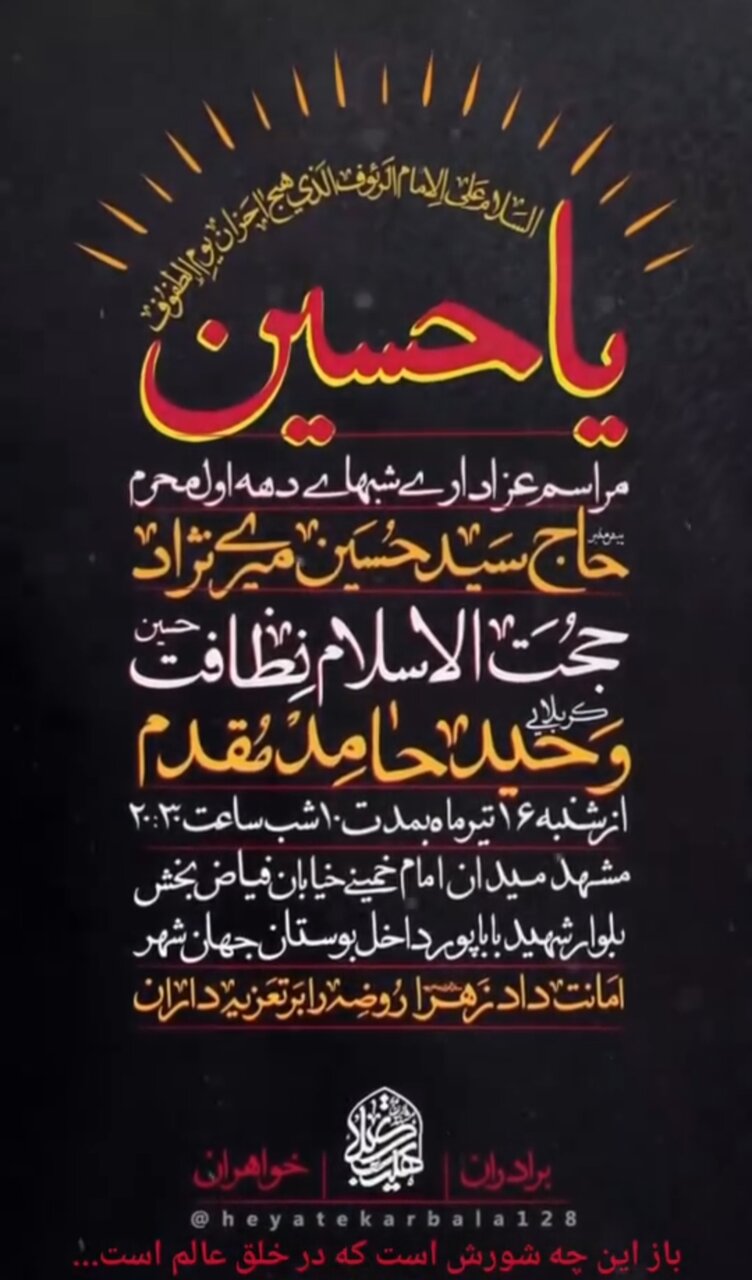 السلام علی الامام الرئوف الذی هیج احزان یوم الطفوف
یا حسین
مراسم عزاداری شبهای دهه اول محرم
پیش منبر
حاج سید حسین میری نژاد
حجت الاسلام نظافت
حسین
کربلایی
وحید حامد مقدم
از شنبه ۱۶ تیر ماه بمدت ۱۰ شب ساعت ۲۰:۳۰
مشهد میدان امام خمینی خیابان فیاض بخش
بلوار شهید باباپور داخل بوستان جهان شهر
امانت داد زهرا روضه را بر تعزیه داران
هیئت کربلا
برادران | خواهران
@heyatekarbala128
باز این چه شورش است که در خلق عالم است...